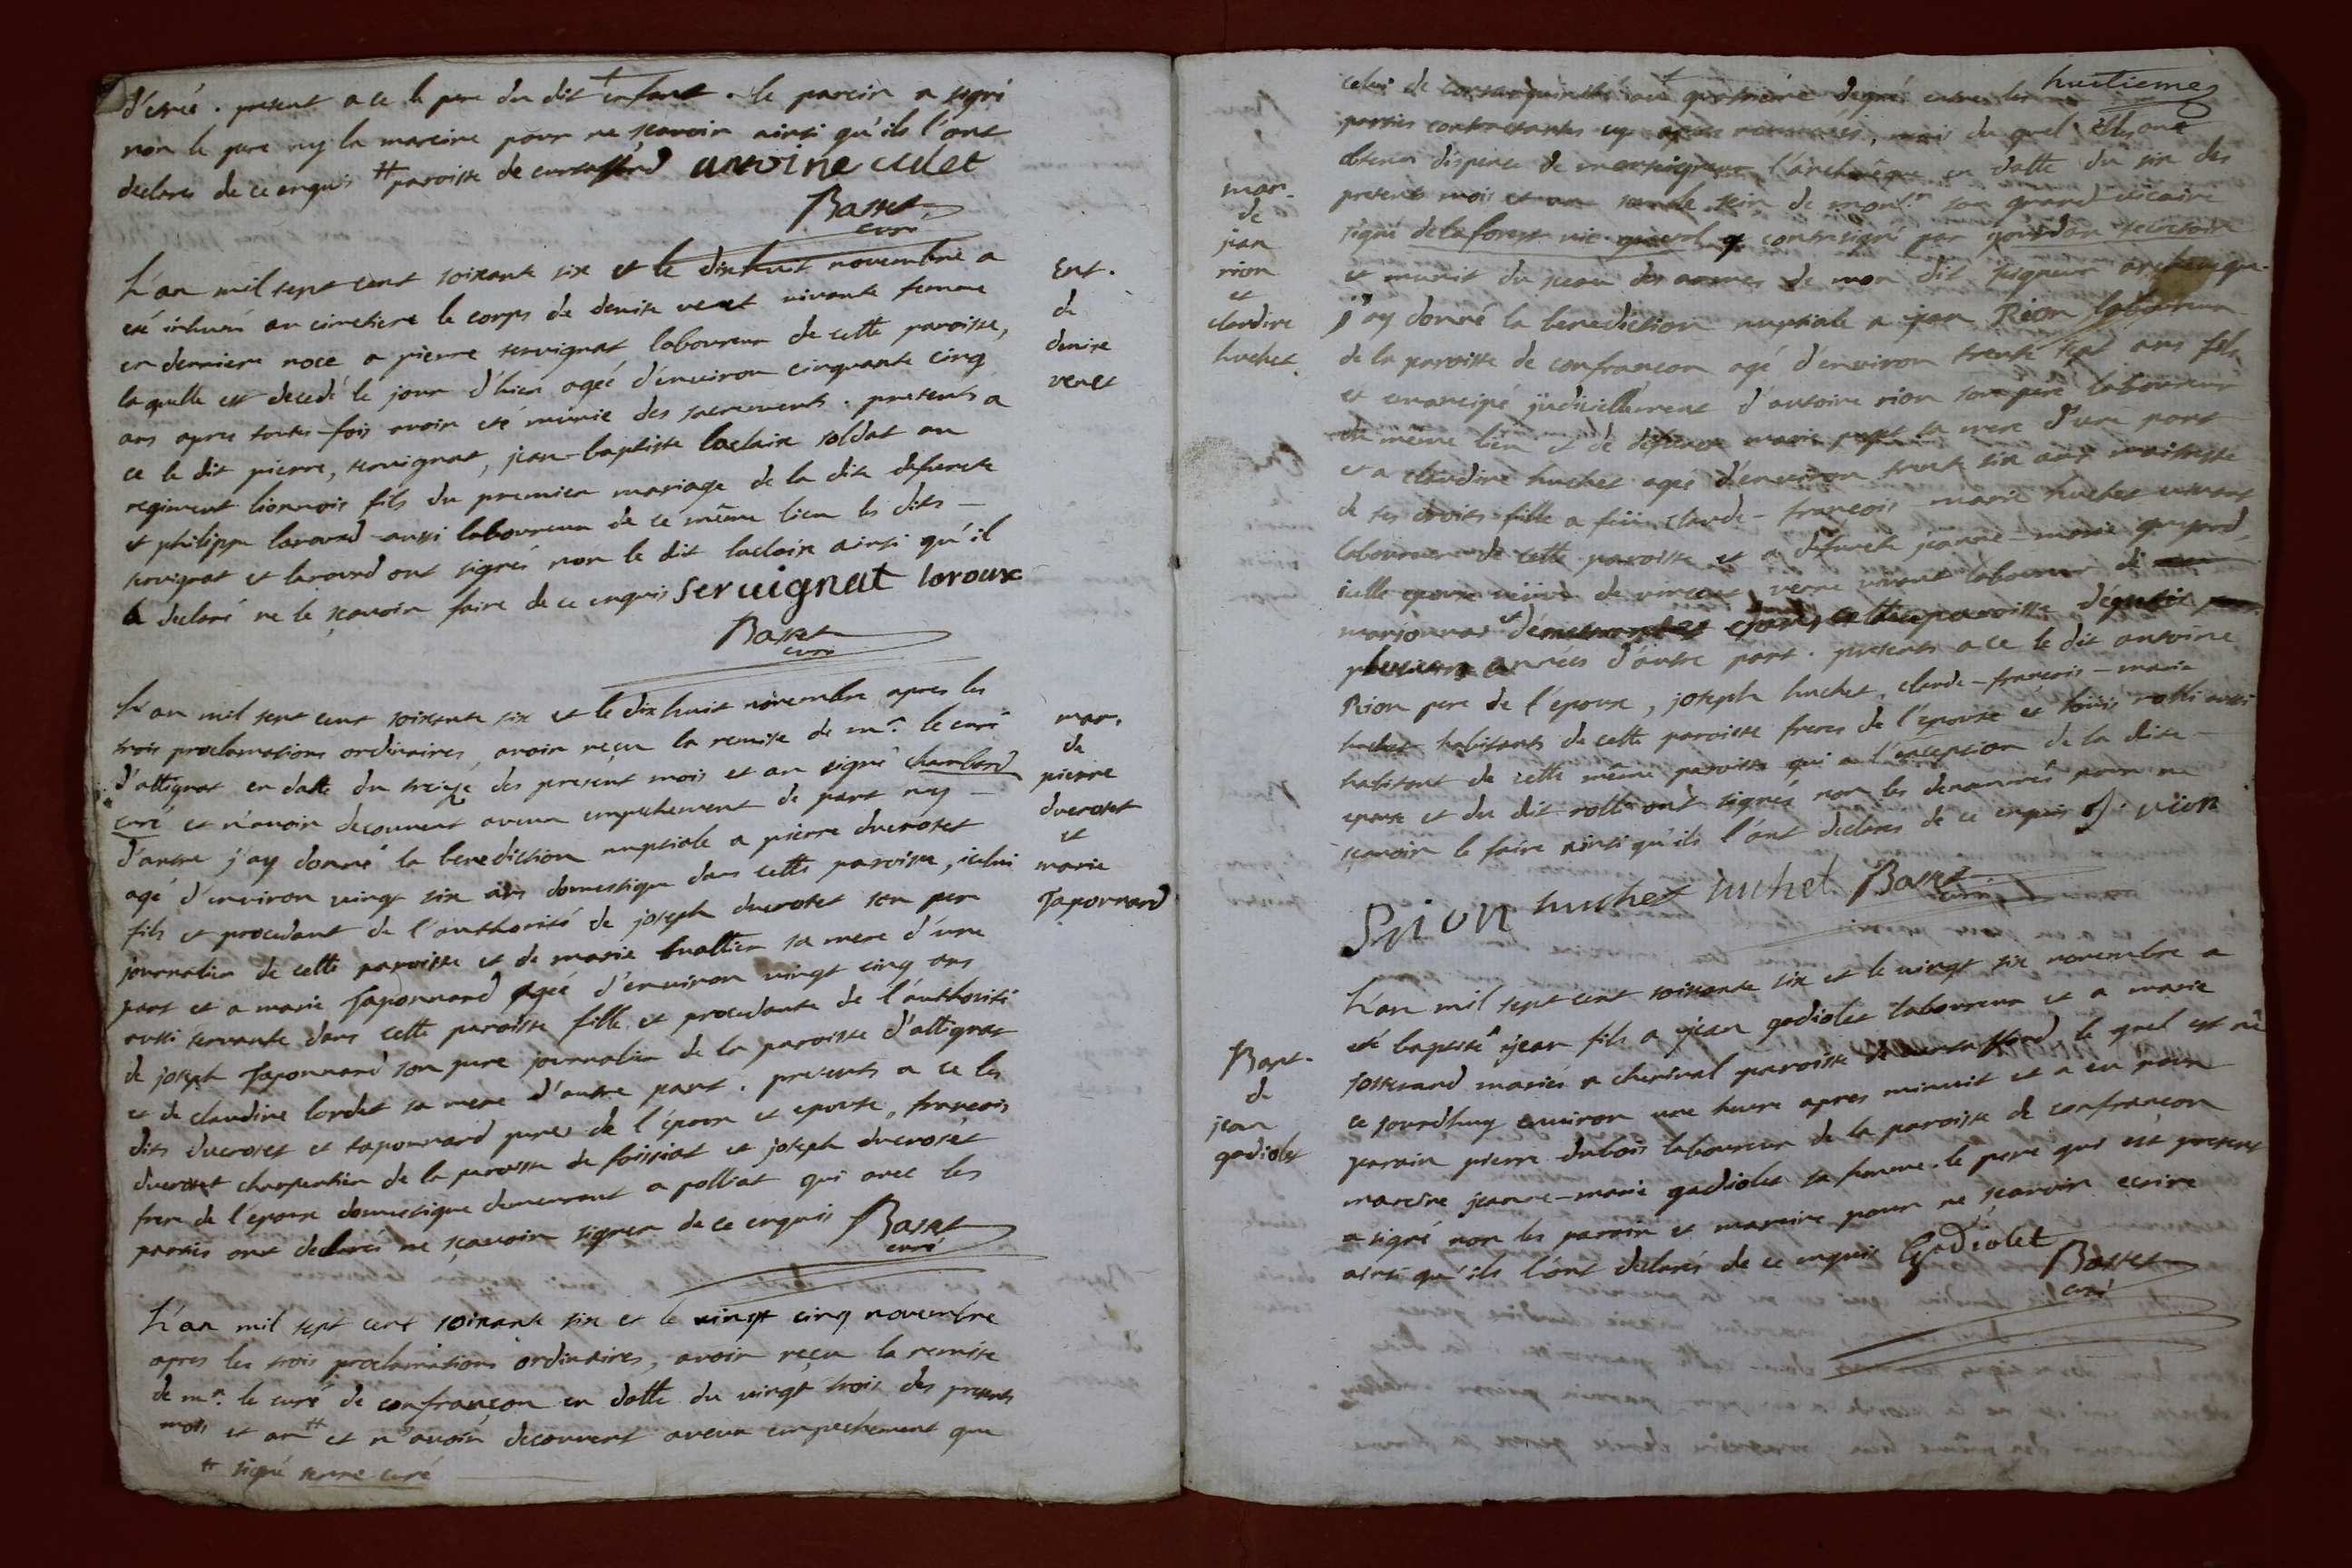 d'etréé . present a ce le pere du dit enfant . le parein a signé
non le pere ny la mareine pour ne sçavoir ainsi qu'ils l'ont
declarés de ce enquis # paroisse de curtaffond antoine
Basset
curé
L'an mil sept cent soixante six et le dixhuit novembre a
eté inhumé au cimetiere le corps de denise venet vivante femme
en derniere noce a pierre servignat laboureur de cette paroisse,
laquelle est decedé le jour d'hier ageé d'environ cinquante cinq
ans apres toutes-fois avoir eté munie des sacrements . presents a
ce le dit pierre, servignat, jean-baptiste laclaix soldat au
regiment lionnois fils du premier mariage de la dite defuncte
et philippe larourd aussi laboureur de ce même lieu les dits –
servignat et larourd ont signés non le dit laclaix ainsi qu'il
a declaré ne le sçavoir faire de ce enquis servignat laroux
Basset
curé
Ent.
de
denise
venet
L'an mil sept cent soixante six et le dixhuit novembre apres les
trois proclamations ordinaires, avoir reçu la remise de mr. le curé
d'attignat en datte du treize des present mois et an signé chambard
curé et n'avoir decouvert aucun empechement de part ny –
d'autre j'ay donné la benediction nuptiale a pierre ducroset
agé d'environ vingt six ans domestique dans cette paroisse, icelui
fils et procedant de l'authorité de joseph ducroset son pere
journalier de cette paroisse et de marie buattier sa mere d'une
part et a marie Taponnard ageé d'environ vingt cinq ans
aussi servante dans cette paroisse fille et procedante de l'authorité
de joseph Taponnard son pere journalier de la paroisse d'attignat
et de claudine lordet sa mere d'autre part . presents a ce les
dits ducroset et taponnard peres de l'époux et epouse, françois
ducroset charpentier de la paroisse de foissiat et joseph ducroset
frere de l'epoux domestique demeurant a polliat qui avec les
parties ont declarés ne sçavoir signer de ce enquis Basset
curé
mar.
de
pierre
ducroset
et
marie
Taponnard
L'an mil sept cent soixante six et le vingt cinq novembre
apres les trois proclamations ordinaires, avoir reçu la remise
de mr. le curé de confrançon en datte du vingt trois des presents
mois et an # et n'avoir decouvert aucun empechement que
# signé serre curé
huitieme
celui de consanguinité au quatriéme degré entre les
parties contractantes cy apres nommées, mais du quel elles ont
obtenu dispence de monseigneur l'archevêque en datte du six des
presents mois et an sous le sein de monsr. son grand-vicaire
signé delaforest vic. general et contresigné par jourdan secretaire
et munit du sceau des armes de mon dit seigneur archevêque
j'ay donné la benediction nuptiale a jean Rion laboureur
de la paroisse de confrançon agé d'environ trente sept ans fils
et emancipé judiciellement d'antoine rion son pere laboureur
du même lieu et de defuncte marie sa mere d'une part
et a claudine huchet ageé d'environ trente six ans maitresse
de ses droits fille a feü, claude-françois marie huchet vivant
laboureur de cette paroisse et a defuncte jeanne-marie guyard,
icelle epouse veüve de vincent verne vivant laboureur de
marsonnas et demeurante dans cette paroisse depuis
plusieurs années d'autre part . presents a ce le dit antoine
Rion pere de l'epoux, joseph huchet, claude-françois-marie
huchet habitants de cette paroisse freres de l'epouse et loüis rollet aussi
habitant de cette même paroisse qui a l'exception de la dite –
epouse et du dit rollet ont signés non les denommés pour ne
sçavoir le faire ainsi qu'ils l'ont declarés de ce enquis J. rion
Rion huchet huchet Basset
curé
mar.
de
jean
rion
et
claudine
huchet.
L'an mil sept cent soixante six et le vingt six novembre a
eté baptisé jean fils a jean gadiolet laboureur et a marie
josserand mariés a cherinal paroisse de curtaffond le quel est né
ce jourdhuy environ une heure apres minuit et a eu pour
parain pierre dubois laboureur de la paroisse de confrançon
mareine jeanne-marie gadiolet sa femme. le pere qui est present
a signé non les parain et mareine pour ne sçavoir ecrire
ainsi qu'ils l'ont declarés de ce enquis Gadiolet
Basset
curé
Bapt.
de
jean
gadiolet